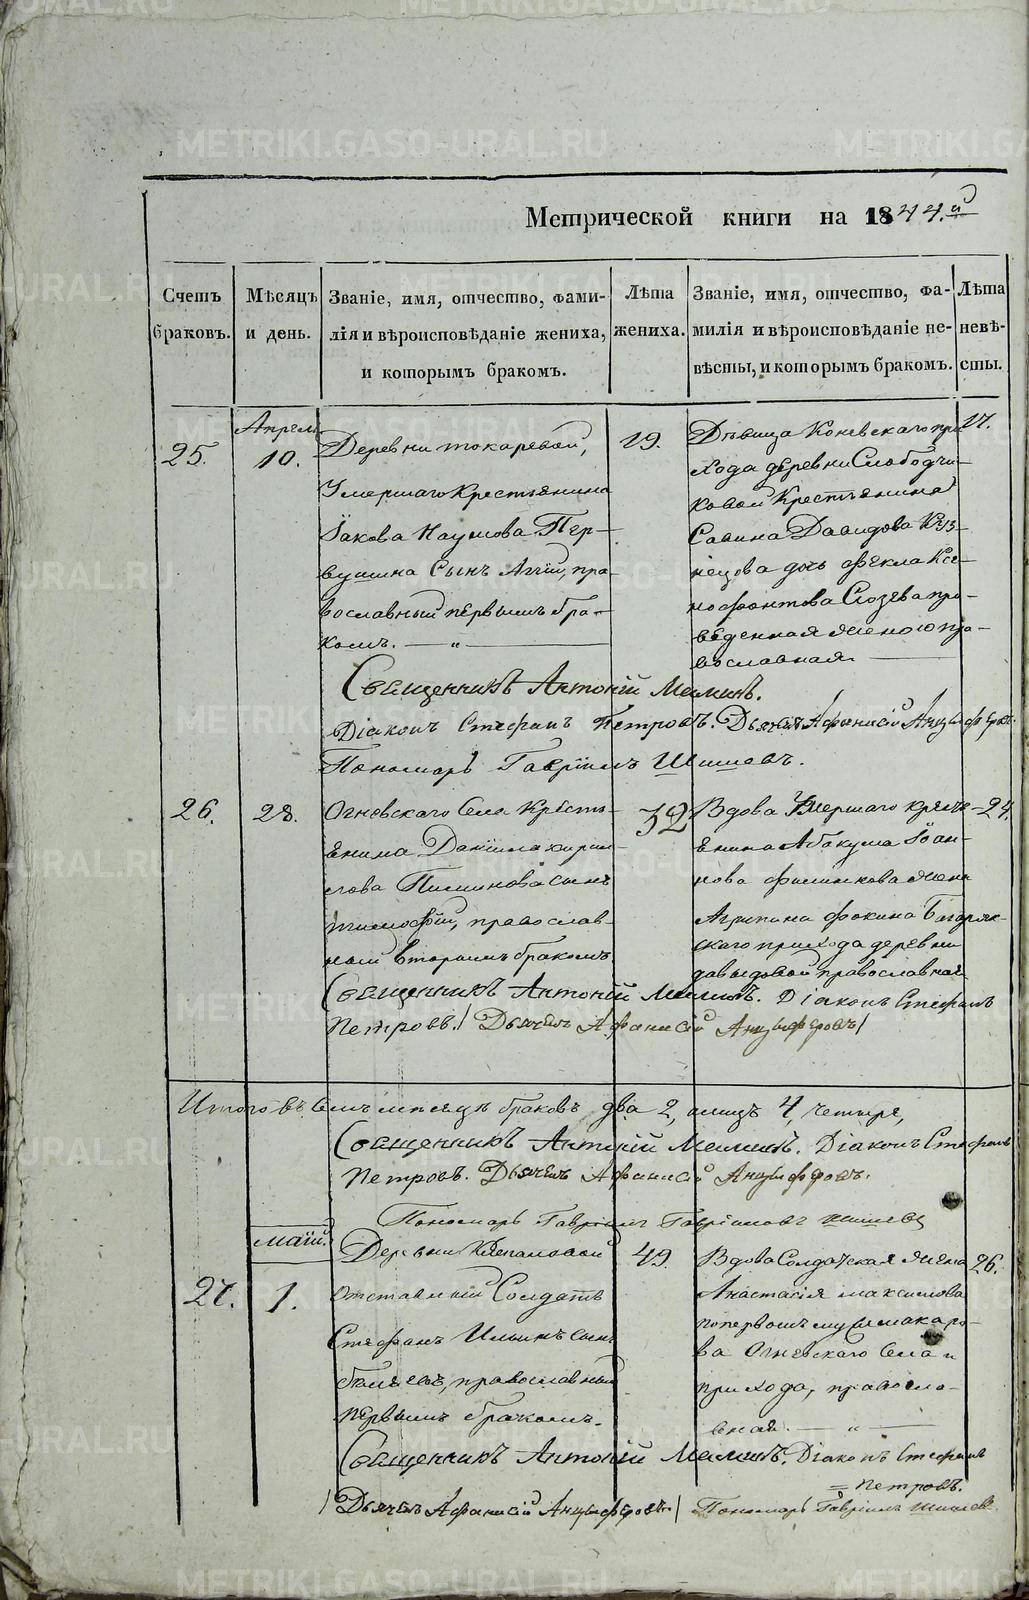 Метрической книги на 1844.й
Счетъ браковъ.
Мѣсяцъ и день.
Званіе, имя, отчество, фами-
лія и вѣроисповѣданіе жениха,
и которымъ бракомъ.
Лѣта жениха.
Званіе, имя, отчество, фа-
милія и вѣроисповѣданіе не-
вѣсты, и которымъ бракомъ.
Лѣта невѣ-
сты.
25.
Апрель
10.
Деревни токаревой,
Умершаго Крестьянина
Іакова Наумова Пер-
вушина Сынъ Аггій, пра-
вославный первымъ бра-
комъ. — „ —
19.
Дѣвица Коневскаго при-
хода деревни Слободчи-
ковой Крестьянина
Савина Давидова Куз-
нецова дочь Фекла Ксе-
нофонтова Сюзева про-
веденная женою пра-
вославная
17.
Священникъ Антоній Маминъ.
Діаконъ Стефанъ Петровъ. Дьячекъ Афанасій Анцыферовъ.
Пономарь Гавріилъ Шишевъ.
26.
28.
Огневскаго Села Кресть-
янина Даніила кирил-
лова Пиминова сынъ
тимофей, православ-
ный вторымъ бракомъ
32
Вдова Умершаго кресть-
янина Абакума Іоан-
нова филинкова жена
Агрипина фокина Багаряк-
скаго прихода деревни
давыдовой православная
24.
Священникъ Антоній Маминъ. Діаконъ Стефанъ
Петровъ. / Дьячекъ Афанасій Анцыферовъ /
Итого въ семъ месяце браковъ два 2, лицъ 4, четыре,
Священникъ Антоній Маминъ. Діаконъ Стефанъ
Петровъ. Дьячекъ Афанасій Анцыферовъ.
Пономарь Гавріилъ Гавріиловъ Шишевъ
маій.
27.
1.
Деревни Клепаловой
Отставный Солдатъ
Стефанъ Ильинъ сынъ
Беляевъ, православный
первымъ бракомъ.
49.
Вдова Солдатская жена
Анастасія максимова
по первому мужу макаро-
ва Огневскаго Села и
прихода, правосла-
вная. — „ —
26.
Священникъ Антоній Маминъ. Діаконъ Стефанъ
= Петровъ.
/ Дьячекъ Афанасій Анцыферовъ. / Пономарь Гавріилъ Шишевъ
METRIKI.GASO-URAL.RU